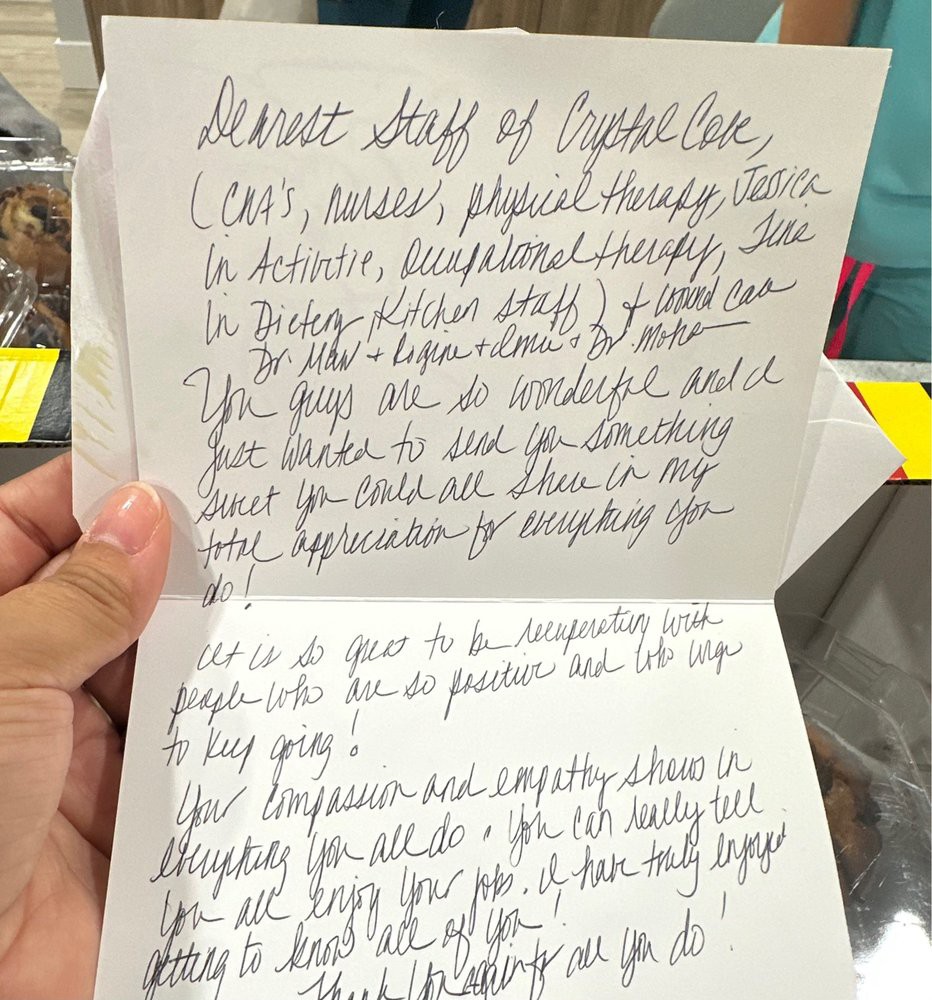 Dearest Staff of Crystal Cove,
(CNA's, nurses, physical therapy, Jessica
in Activitie, Occupational therapy, Tina
in Dietery, Kitchen Staff) + wound care
Dr. + + + Dr.
You guys are so wonderful and I
just wanted to send you something
sweet you could all share in my
total appreciation for everything you
do!
It is so great to be recuperating with
people who are so positive and who urge
to keep going!
Your compassion and empathy shows in
everything you all do. You can really tell
you all enjoy your jobs. I have truly enjoyed
getting to know all of you!
Thank you again for all you do!